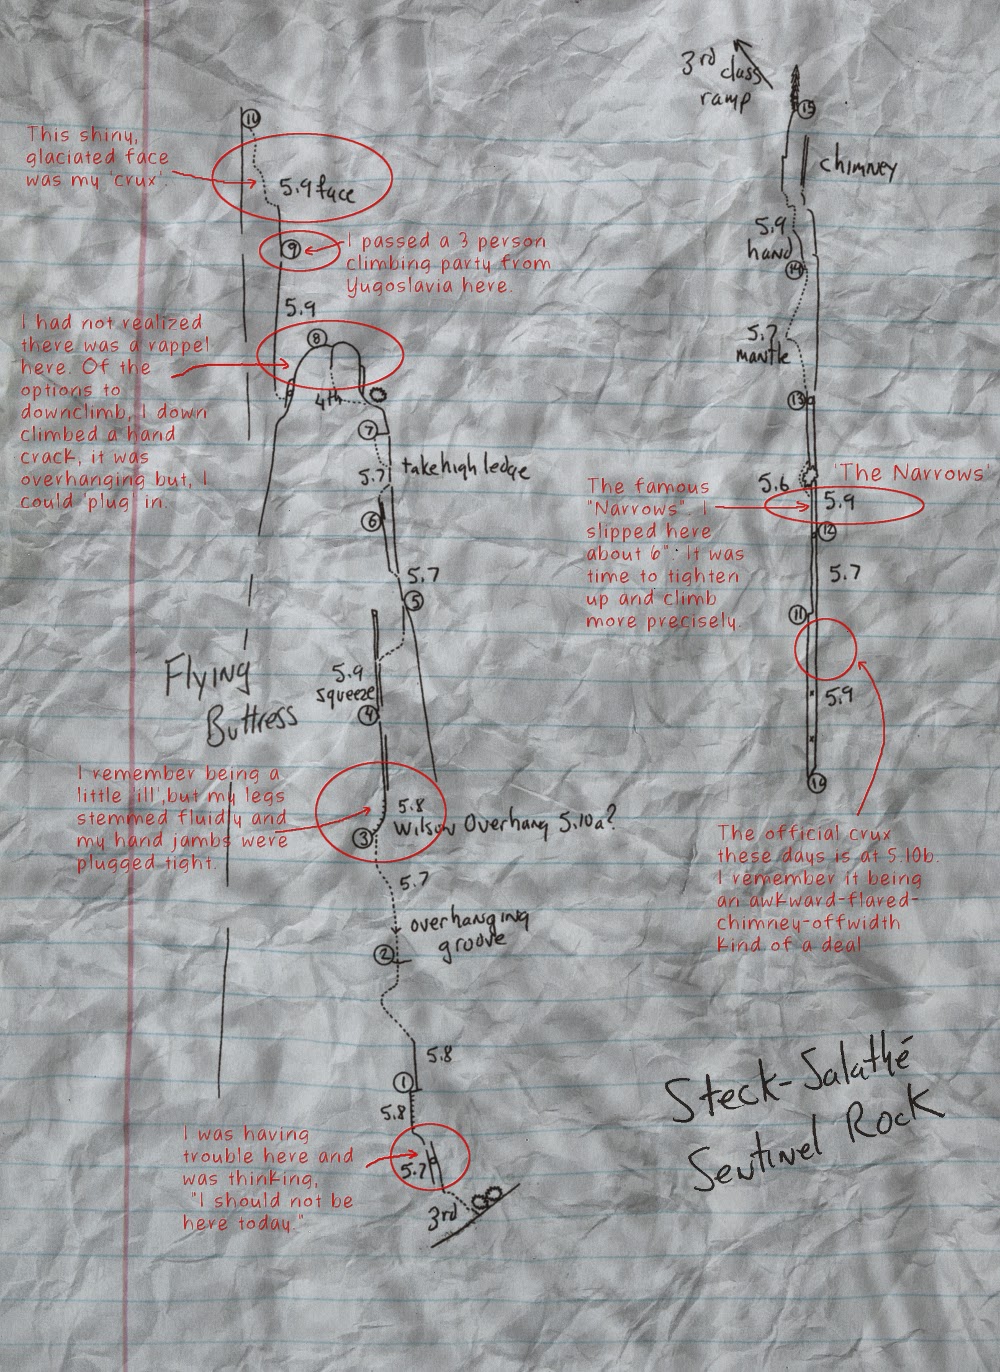 3rd class
ramp
15
chimney
5.9
hand
14
5.7
mantle
13
5.6
'The Narrows'
5.9
12
The famous
"Narrows". I
slipped here
about 6". It was
time to tighten
up and climb
more precisely.
5.7
11
5.9
10
The official crux
these days is at 5.10b.
I remember it being
an awkward-flared-
chimney-offwidth
kind of a deal
This shiny,
glaciated face
was my 'crux'.
5.9 face
9
I passed a 3 person
climbing party from
Yugoslavia here.
5.9
I had not realized
there was a rappel
here. Of the
options to
downclimb, I down
climbed a hand
crack, it was
overhanging but, I
could 'plug in.
8
4th
7
5.7
take high ledge
6
5.7
5
5.9
squeeze
4
Flying
Buttress
I remember being a
little 'ill',but my legs
stemmed fluidly and
my hand jambs were
plugged tight.
5.8
Wilson Overhang 5.10a?
3
5.7
overhanging
groove
2
5.8
1
5.8
I was having
trouble here and
was thinking,
"I should not be
here today."
5.7
3rd
Steck-Salathé
Sentinel Rock